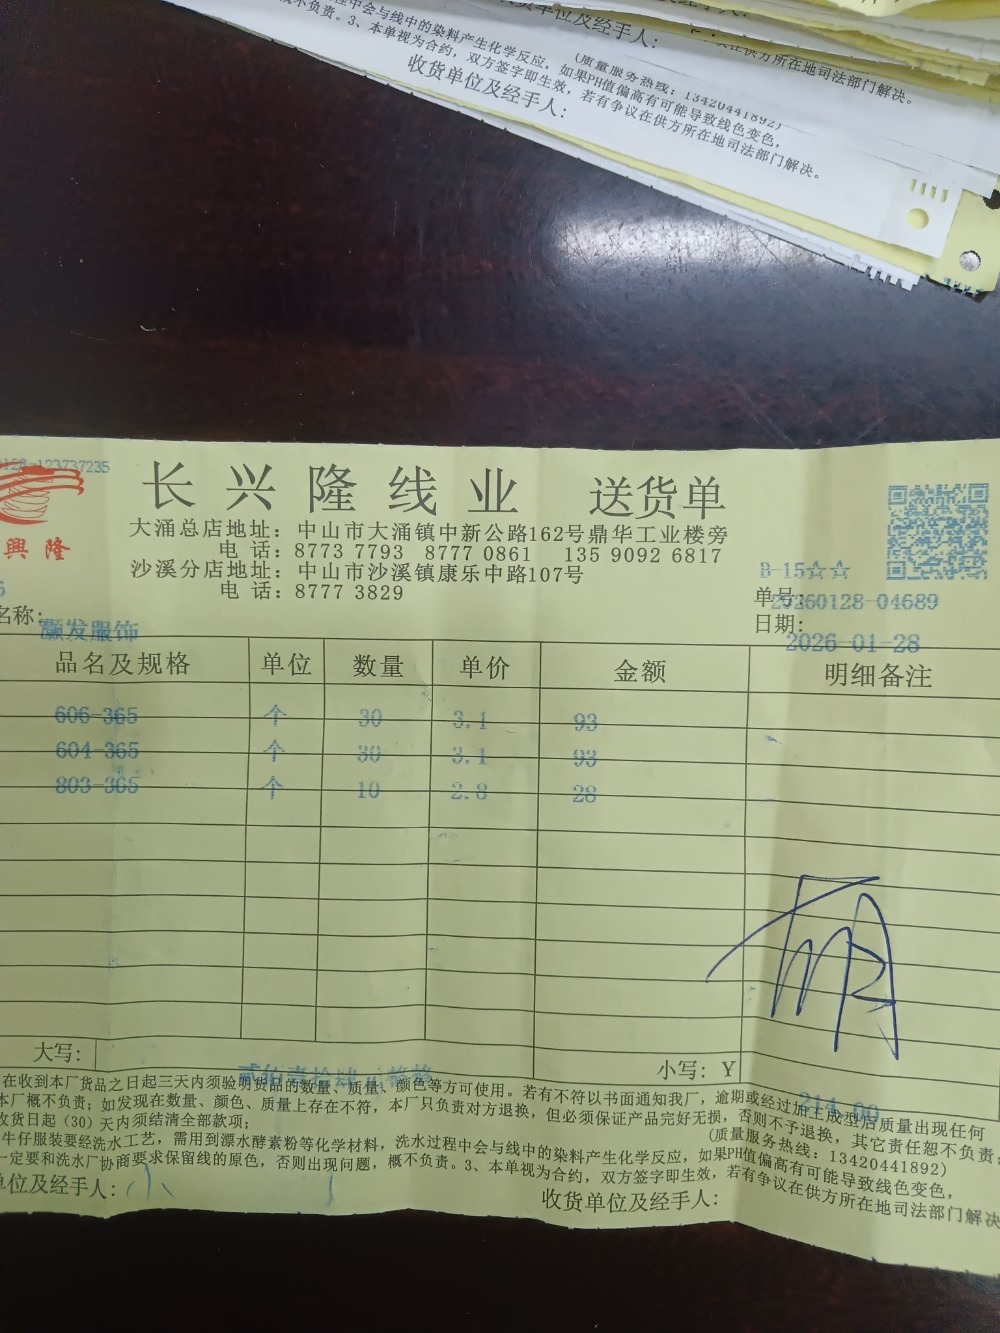 程中会与线中的染料产生化学反应,
概不负责。3、本单视为合约, 双方签字即生效, 如果PH值偏高有可能导致线色变色,
(质量服务热线: 13420441892)
若有争议在供方所在地司法部门解决。
收货单位及经手人:
收货单位及经手人:
在供方所在地司法部门解决。
128-123737235
興隆
长兴隆线业 送货单
大涌总店地址: 中山市大涌镇中新公路162号鼎华工业楼旁
电 话: 8773 7793 8777 0861 135 9092 6817
沙溪分店地址: 中山市沙溪镇康乐中路107号
电 话: 8777 3829
B-15☆☆
单号: 20260128-04689
日期: 2026-01-28
名称: 灏发服饰
品名及规格 单位 数量 单价 金额 明细备注
606-365 个 30 3.1 93
604-365 个 30 3.1 93
803-365 个 10 2.8 28
大写: 贰佰壹拾肆 小写: Y 214.00
在收到本厂货品之日起三天内须验明货品的数量、质量、颜色等方可使用。若有不符以书面通知我厂, 逾期或经过加工成型后质量出现任何
本厂概不负责; 如发现在数量、颜色、质量上存在不符, 本厂只负责对方退换, 但必须保证产品完好无损, 否则不予退换, 其它责任恕不负责;
收货日起(30)天内须结清全部款项;
(质量服务热线: 13420441892)
牛仔服装要经洗水工艺, 需用到漂水酵素粉等化学材料, 洗水过程中会与线中的染料产生化学反应, 如果PH值偏高有可能导致线色变色,
一定要和洗水厂协商要求保留线的原色, 否则出现问题, 概不负责。3、本单视为合约, 双方签字即生效, 若有争议在供方所在地司法部门解决
单位及经手人:
收货单位及经手人: